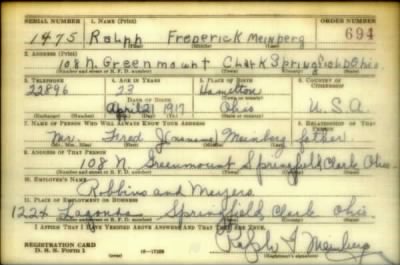 SERIAL NUMBER 1. NAME (Print) ORDER NUMBER
1475 Ralph Frederick Meinberg 694
(First) (Middle) (Last)
2. ADDRESS (Print)
108 N. Greenmount Clark Springfield Ohio.
(Number and street or R. F. D. number) (Town) (County) (State)
3. TELEPHONE 4. AGE IN YEARS 5. PLACE OF BIRTH 6. COUNTRY OF CITIZENSHIP
22896 23 Hamilton
DATE OF BIRTH (Town or county)
April 21 1917 Ohio U. S. A
(Exchange) (Number) (Mo.) (Day) (Yr.) (State or country)
7. NAME OF PERSON WHO WILL ALWAYS KNOW YOUR ADDRESS 8. RELATIONSHIP OF THAT PERSON
Mr. Fred J (no name) Meinberg father
(Mr., Mrs., Miss) (First) (Middle) (Last)
9. ADDRESS OF THAT PERSON
108 N. Greenmount Springfield, Clark Ohio.
(Number and street or R. F. D. number) (Town) (County) (State)
10. EMPLOYER'S NAME
Robbins and Meyers
11. PLACE OF EMPLOYMENT OR BUSINESS
Lagonda Springfield, Clark Ohio.
(Number and street or R. F. D. number) (Town) (County) (State)
I AFFIRM THAT I HAVE VERIFIED ABOVE ANSWERS AND THAT THEY ARE TRUE.
REGISTRATION CARD
D. S. S. Form 1 Ralph F. Meinberg
(Registrant's signature)